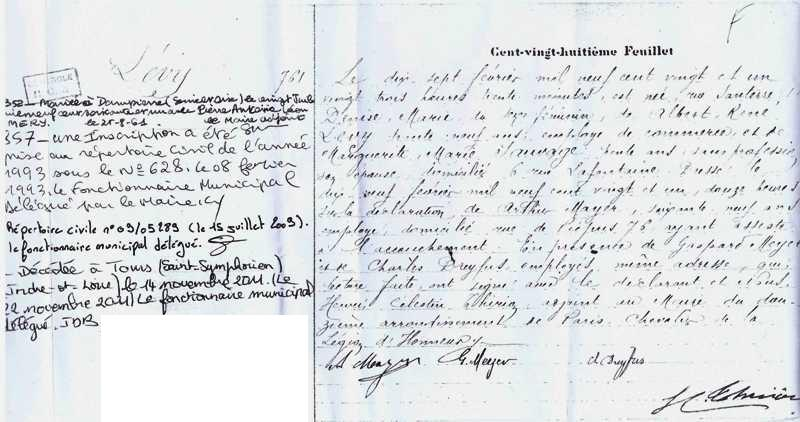 Lévy
761
352 - Mariée à Dampierre le vingt
Pierre Antoine Léon
MERY. le 21-8-61. le Maire adjoint
357 - une Inscription a été
mise au répertoire civil de l'année
1993 sous le N° 628. le 08 février
1993. le Fonctionnaire Municipal
Délégué par le Maire.
Répertoire civile n° 09/05289 (le 15 juillet 2009).
le fonctionnaire municipal délégué.
- Décédée à Tours (Saint-Symphorien)
Indre-et-Loire) le 14 novembre 2011. (Le
novembre 2011) Le fonctionnaire municipal
délégué. JDB
F
Cent-vingt-huitième Feuillet
Le dix sept février mil neuf cent vingt et un
vingt trois heures trente minutes, est née, rue Santerre,
Denise, Marie, du sexe féminin, de Albert René
Lévy trente neuf ans, employé de commerce, et de
Marguerite, Marie, trente ans, sans profession,
son épouse, domiciliés 6 rue Lafontaine. Dressé le
dix neuf février mil neuf cent vingt et un, douze heures
sur la déclaration de Arthur Mayer, soixante neuf ans
employé, domicilié rue de Picpus 76 ayant assisté
à l'accouchement. En présence de Gaspard Meyer
et de Charles Dreyfus, employés, même adresse, qui,
lecture faite, ont signé avec le déclarant et Nous,
Henri, Célestin adjoint au Maire du
douzième arrondissement de Paris, Chevalier de la
Légion d'Honneur
A Mayer G. Meyer Dreyfus